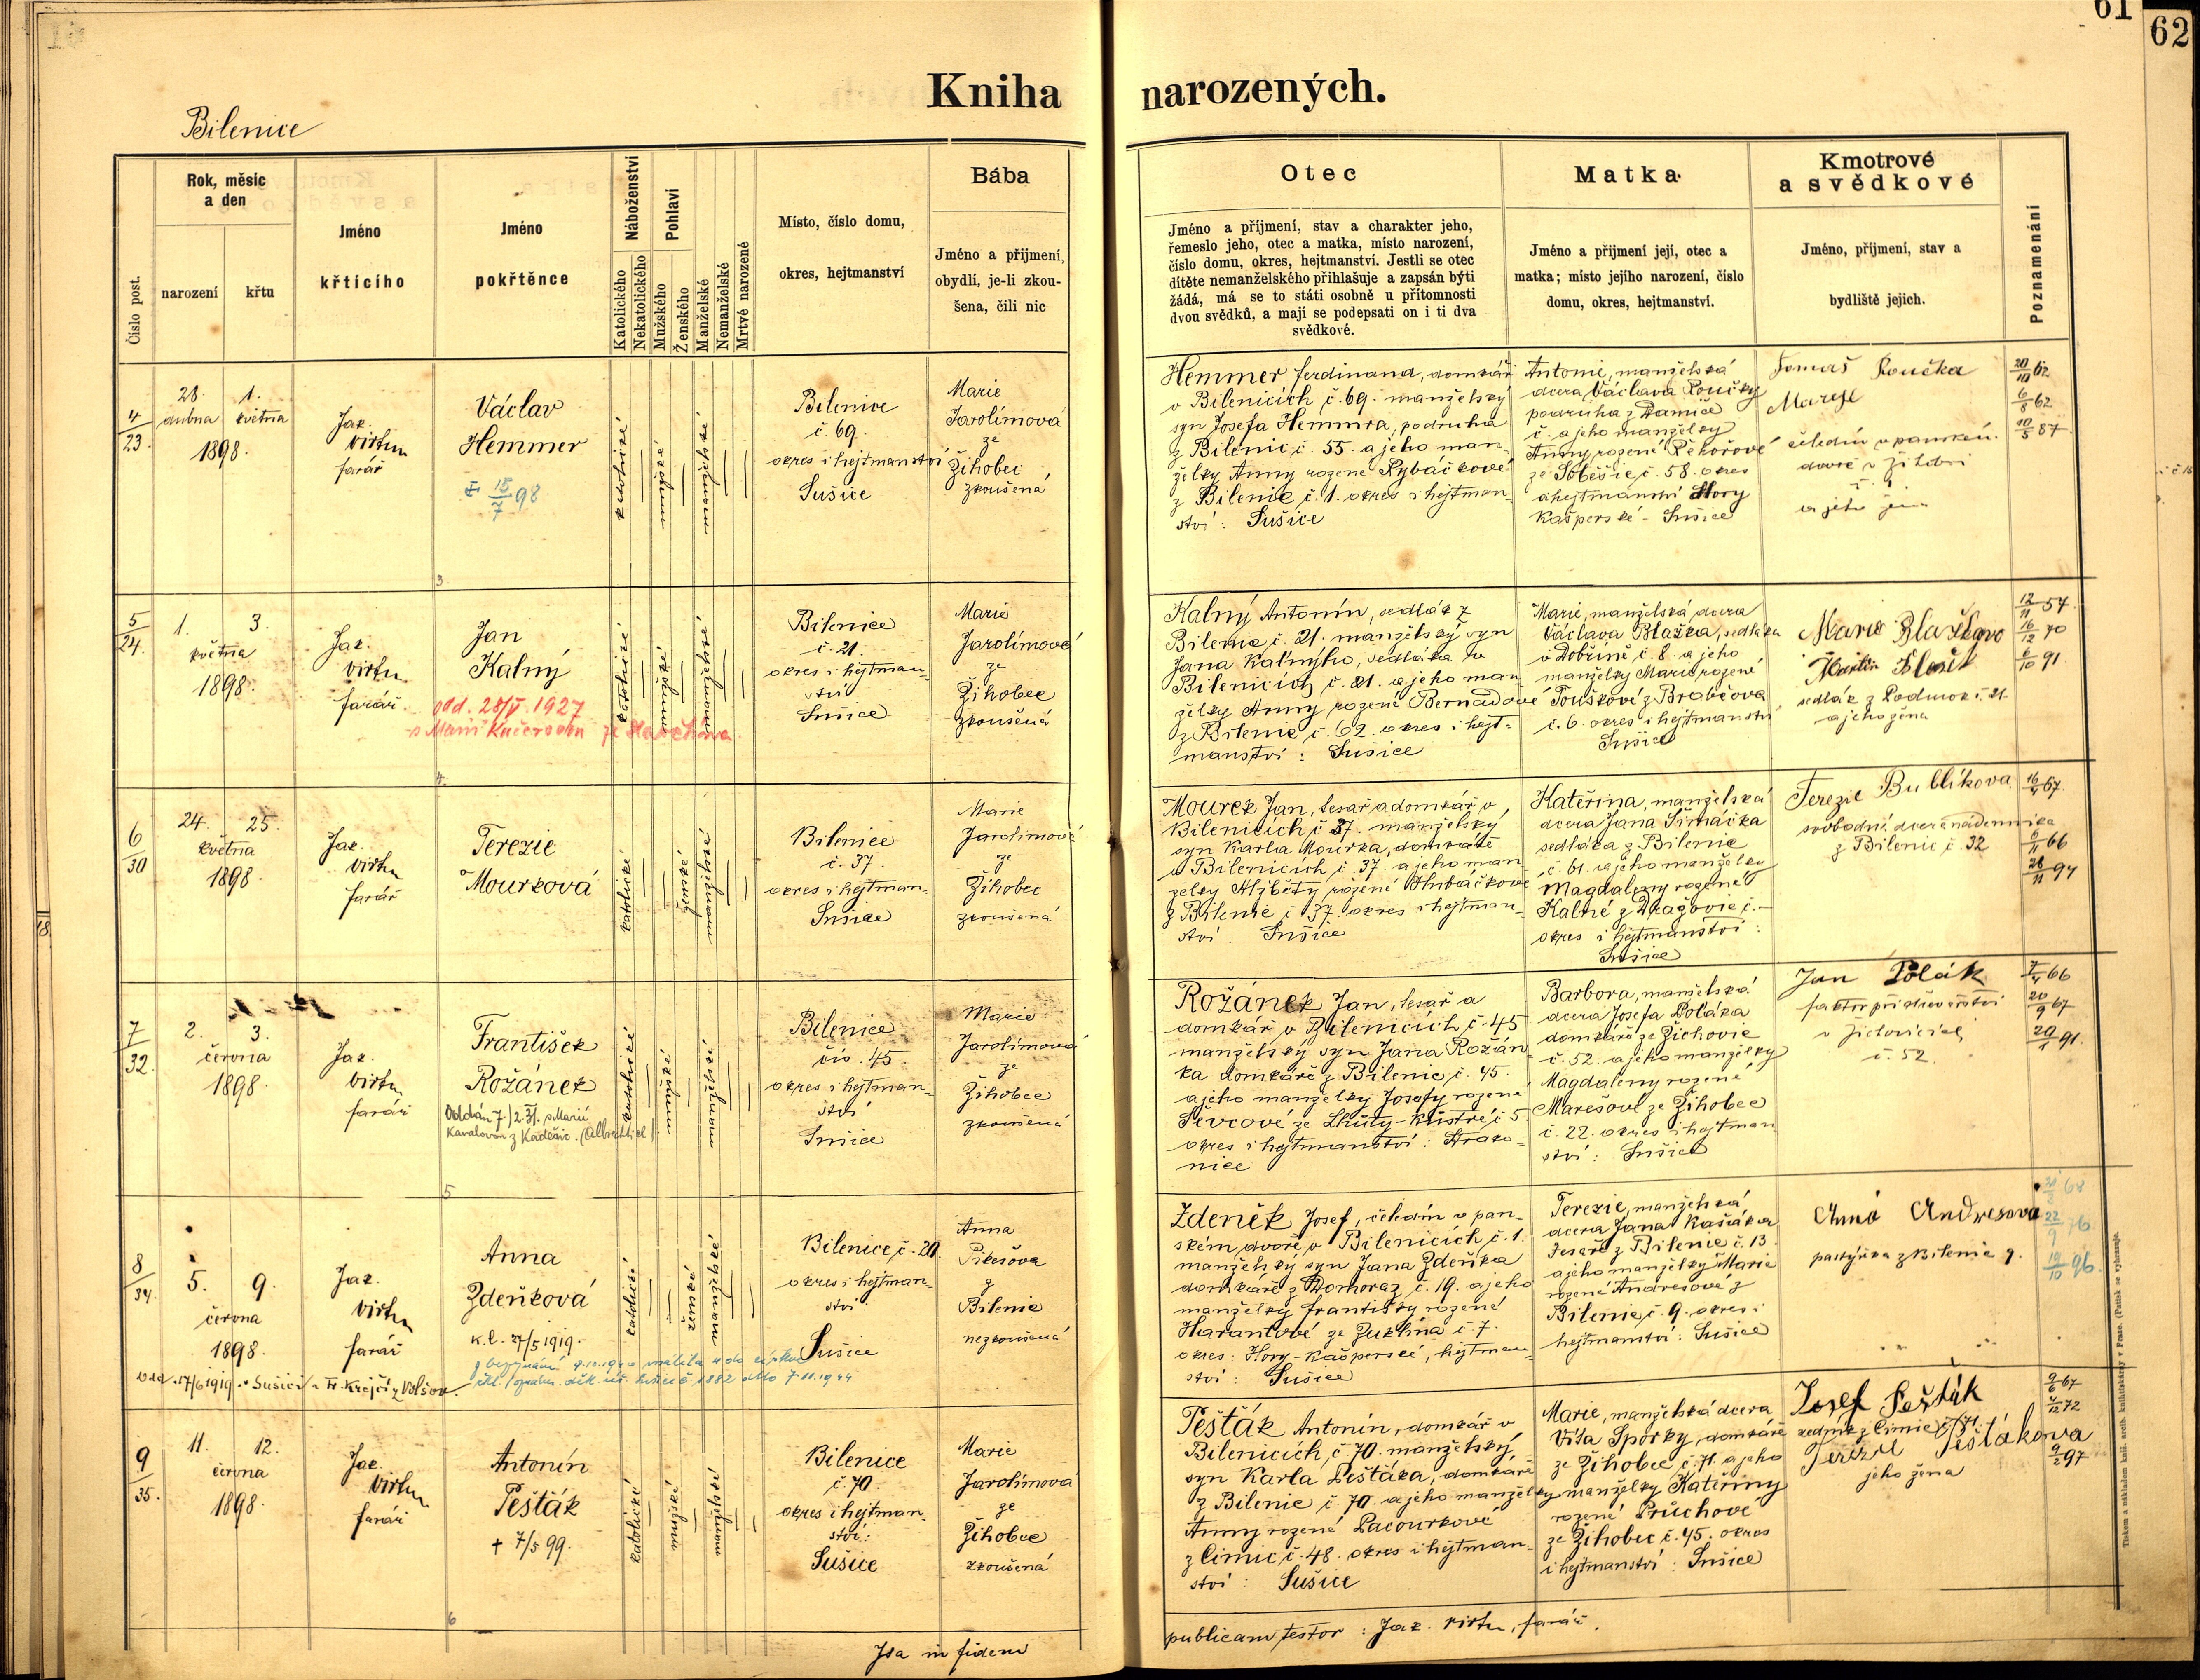 61
62
Kniha narozených.
Bilenice
Číslo post.
Rok, měsíc
a den
narození
křtu
Jméno
křtícího
Jméno
pokřtěnce
Náboženství
Katolického
Nekatolického
Pohlaví
Mužského
Ženského
Manželské
Nemanželské
Mrtvě narozené
Místo, číslo domu,
okres, hejtmanství
Bába
Jméno a přijmení,
obydlí, je-li zkou-
šena, čili nic
Otec
Jméno a příjmení, stav a charakter jeho,
řemeslo jeho, otec a matka, místo narození,
číslo domu, okres, hejtmanství. Jestli se otec
dítěte nemanželského přihlašuje a zapsán býti
žádá, má se to státi osobně u přítomnosti
dvou svědků, a mají se podepsati on i ti dva
svědkové.
Matka
Jméno a přijmení její, otec a
matka; místo jejího narození, číslo
domu, okres, hejtmanství.
Kmotrové
a svědkové
Jméno, příjmení, stav a
bydliště jejich.
Poznamenání
4/23.
28. 1.
dubna května
1898.
Jak.
Virtu
farář
Václav
Hemmer
15/7 98
katolické
mužské
manželské
Bilenice
č. 69.
okres i hejtmanství
Sušice
Marie
Jarolímová
ze
Žihobec
zkoušená
Hemmer Ferdinand, domkář
v Bilenicích č. 69. manželský
syn Josefa Hemmra, podruha
z Bilenic č. 55. a jeho man-
želky Anny rozené Rybáčkové
z Bilenic č. 1. okres i hejtman-
ství: Sušice
Antonie, manželská
dcera Václava Loučky
podruha z Damíče
č. a jeho manželky
Anny rozené Řehořové
ze Soběšic č. 58. okres
a hejtmanství Hory
Kašperské - Sušice
Tomáš Loučka
Marye
čeledín v panském
dvoře v Žihobci
a jeho žena
20/10 62
6/8 62
10/5 87.
3
5/24.
1. 3.
května
1898.
Jak.
Virtu
farář.
Jan
Kalný
odd. 28/V. 1927
s Marií Kučerovou
katolické
mužské
manželské
Bilenice
č. 21.
okres i hejtman-
ství
Sušice
Marie
Jarolímová
ze
Žihobec
zkoušená
Kalný Antonín, sedlák z
Bilenic č. 21. manželský syn
Jana Kalnýho, sedláka v
Bilenicích č. 21. a jeho man-
želky Anny rozené Bernadové
z Bilenic č. 62. okres i hejt-
manství: Sušice
Marie, manželská dcera
Václava Blažka, sedláka
v Dobříně č. 8. a jeho
manželky Marie rozené
Touškové z Braběčova
č. 6. okres i hejtmanství
Sušice
Marie
Martin
sedlák z Podmok č. 21.
a jeho žena
12/11 57.
16/12 70
6/10 91.
4.
6/30
24. 25.
května
1898.
Jak.
Virtu
farář
Terezie
Mourková
katolické
ženské
manželské
Bilenice
č. 37.
okres i hejtman-
Sušice
Marie
Jarolímová
ze
Žihobec
zkoušená
Mourek Jan, tesař a domkář v
Bilenicích č 37. manželský
syn Karla Mourka, domkáře
v Bilenicích č. 37. a jeho man
želky Alžběty rozené Hubáčkové
z Bilenic č 37. okres i hejtman-
ství: Sušice
Kateřina, manželská
dcera Jana Šimáčka
sedláka z Bilenic
č. 61. a jeho manželky
Magdaleny rozené
Kalné z Dražovic č. —
okres i hejtmanství:
Sušice
Terezie Bublíkova
svobodná dcera nádenníka
z Bilenic č. 32
16/4 67.
6/11 66
28/11 94
7/32.
2. 3.
června
1898.
Jak.
Virtu
farář
František
Rožánek
Oddán 7/2.31. s Marií
Kavalovou z Kadešic.
katolické
mužské
manželské
Bilenice
čís. 45.
okres i hejtman-
ství
Sušice
Marie
Jarolímová
ze
Žihobce
zkoušená
Rožánek Jan, tesař a
domkář v Bilenicích č. 45
manželský syn Jana Rožán
ka domkáře z Bilenic č. 45.
a jeho manželky Josefy rozené
Ševcové ze Lhůty-Kůstřé č 5
okres i hejtmanství: Strako-
nice
Barbora, manželská
dcera Josefa Poláka
domkáře ze Žichovic
č. 52. a jeho manželky
Magdaleny rozené
Marešové ze Žihobec
č. 22. okres i hejtman
ství: Sušice
Jan Polák
faktor při
v Žichovicích
č. 52.
7/4 66
20/9 67
20/1 91.
5
8/34.
5. 9.
června
1898.
Jak.
Virtu
farář
Anna
Zdeňková
k.l. 27/5 1919.
odd. 17/6 1919. v Sušici s Fr. Krejčí z Volšov
katolické
ženské
manželské
Bilenice, č. 20.
okres i hejtman-
ství:
Sušice
Anna
Pikešova
z
Bilenic
nezkoušená
Zdeněk Josef, čeledín v pan-
ském dvoře v Bilenicích č. 1.
manželský syn Jana Zdeňka
domkáře z Domoraz č. 19. a jeho
manželky Františky rozené
Harantové ze Zuklína č. 7.
okres: Hory-Kašperské, hejtman-
ství: Sušice
Terezie, manželská
dcera Jana Kašáka
tesaře z Bilenic č. 13.
a jeho manželky Marie
rozené Andresové z
Bilenic č. 9. okres i
hejtmanství: Sušice
Anna Andresova
z Bilenic 9.
22/9 76
19/10 96.
9/35.
11. 12.
června
1898.
Jak.
Virtu
farář
Antonín
Pešťák
+ 7/5 99.
katolické
mužské
manželské
Bilenice
č. 70.
okres i hejtman-
ství:
Sušice
Marie
Jarolímová
ze
Žihobce
zkoušená
Pešťák Antonín, domkář v
Bilenicích, č. 70. manželský
syn Karla Pešťáka, domkáře
z Bilenic č. 70. a jeho manželky
Anny rozené Pacourkové
z Čimic č. 48. okres i hejtman-
ství: Sušice
Marie, manželská dcera
Víta Sporky, domkáře
ze Žihobec č. 71. a jeho
manželky Kateřiny
rozené Průchové
ze Žihobec č. 45. okres
i hejtmanství: Sušice
Josef Pešťák
zedník z Čimic č. 71.
Terezie Pešťákova
jeho žena
9/6 67
/12 72
9/2 97
6
Ita in fidem
publicam testor: Jak. Virtu, farář.